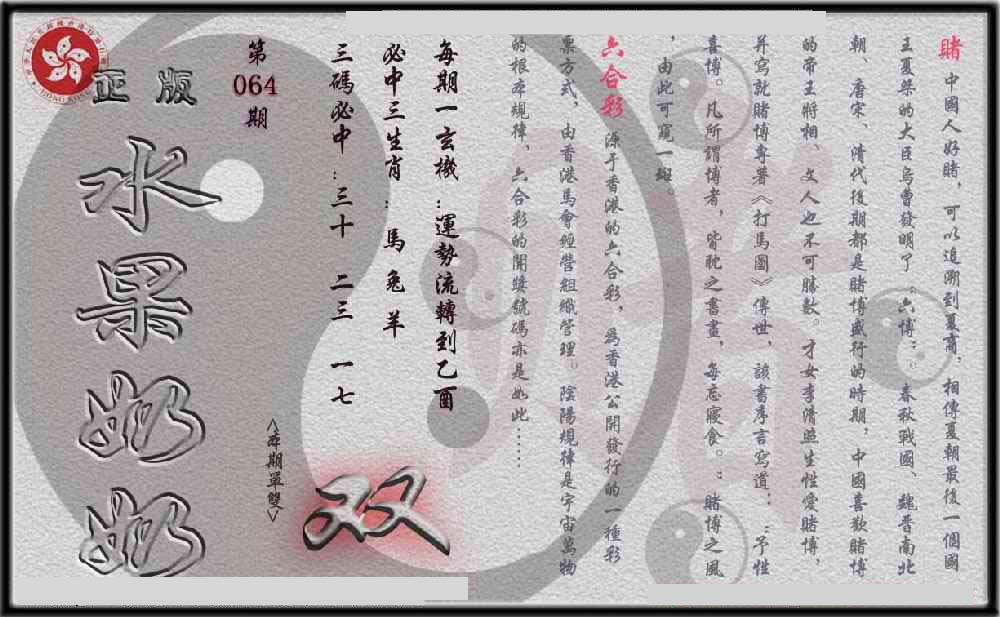 賭 中國人好賭，可以追溯到夏商，相傳夏朝最後一個國
王夏桀的大臣烏曹發明了“六博”，春秋戰國、魏晉南北
朝、唐宋、清代後期都是賭博盛行的時期，中國喜歡賭博
的帝王將相、文人也不可勝數。才女李清照生性愛賭博，
并寫就賭博專著《打馬圖》傳世，該書序言寫道：“予性
喜博。凡所謂博者，皆耽之晝夜，每忘寢食。”賭博之風
，由此可窺一斑。
六合彩 源于香港的六合彩，為香港公開發行的一種彩
票方式，由香港馬會經營組織管理。陰陽規律是宇宙萬物
的根本規律，六合彩的開獎號碼亦是如此……
每期一玄機：運勢流轉到乙酉
必中三生肖：馬兔羊
三碼必中：三十 二三 一七
第064期
<本期單雙>
双
正版
水果奶奶